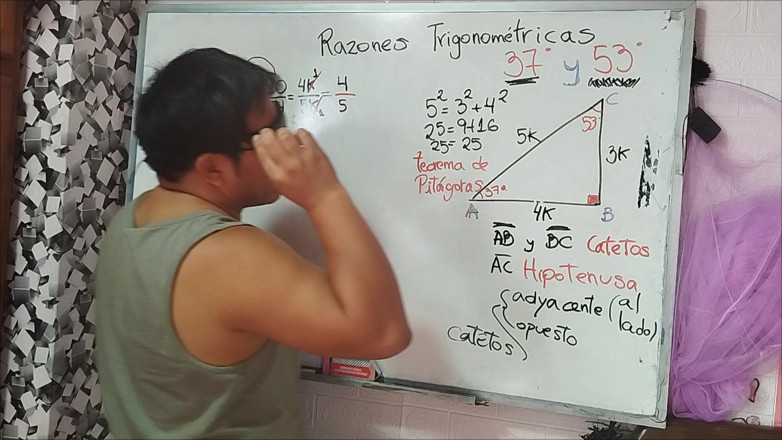 Razones Trigonométricas
37° y 53°
= 4K / 5K = 4 / 5
5² = 3² + 4²
25 = 9+16
25 = 25
teorema de
Pitágoras
C
53°
5K
3K
37°
A
4K
B
AB y BC Catetos
AC Hipotenusa
catetos
adyacente (al lado)
opuesto